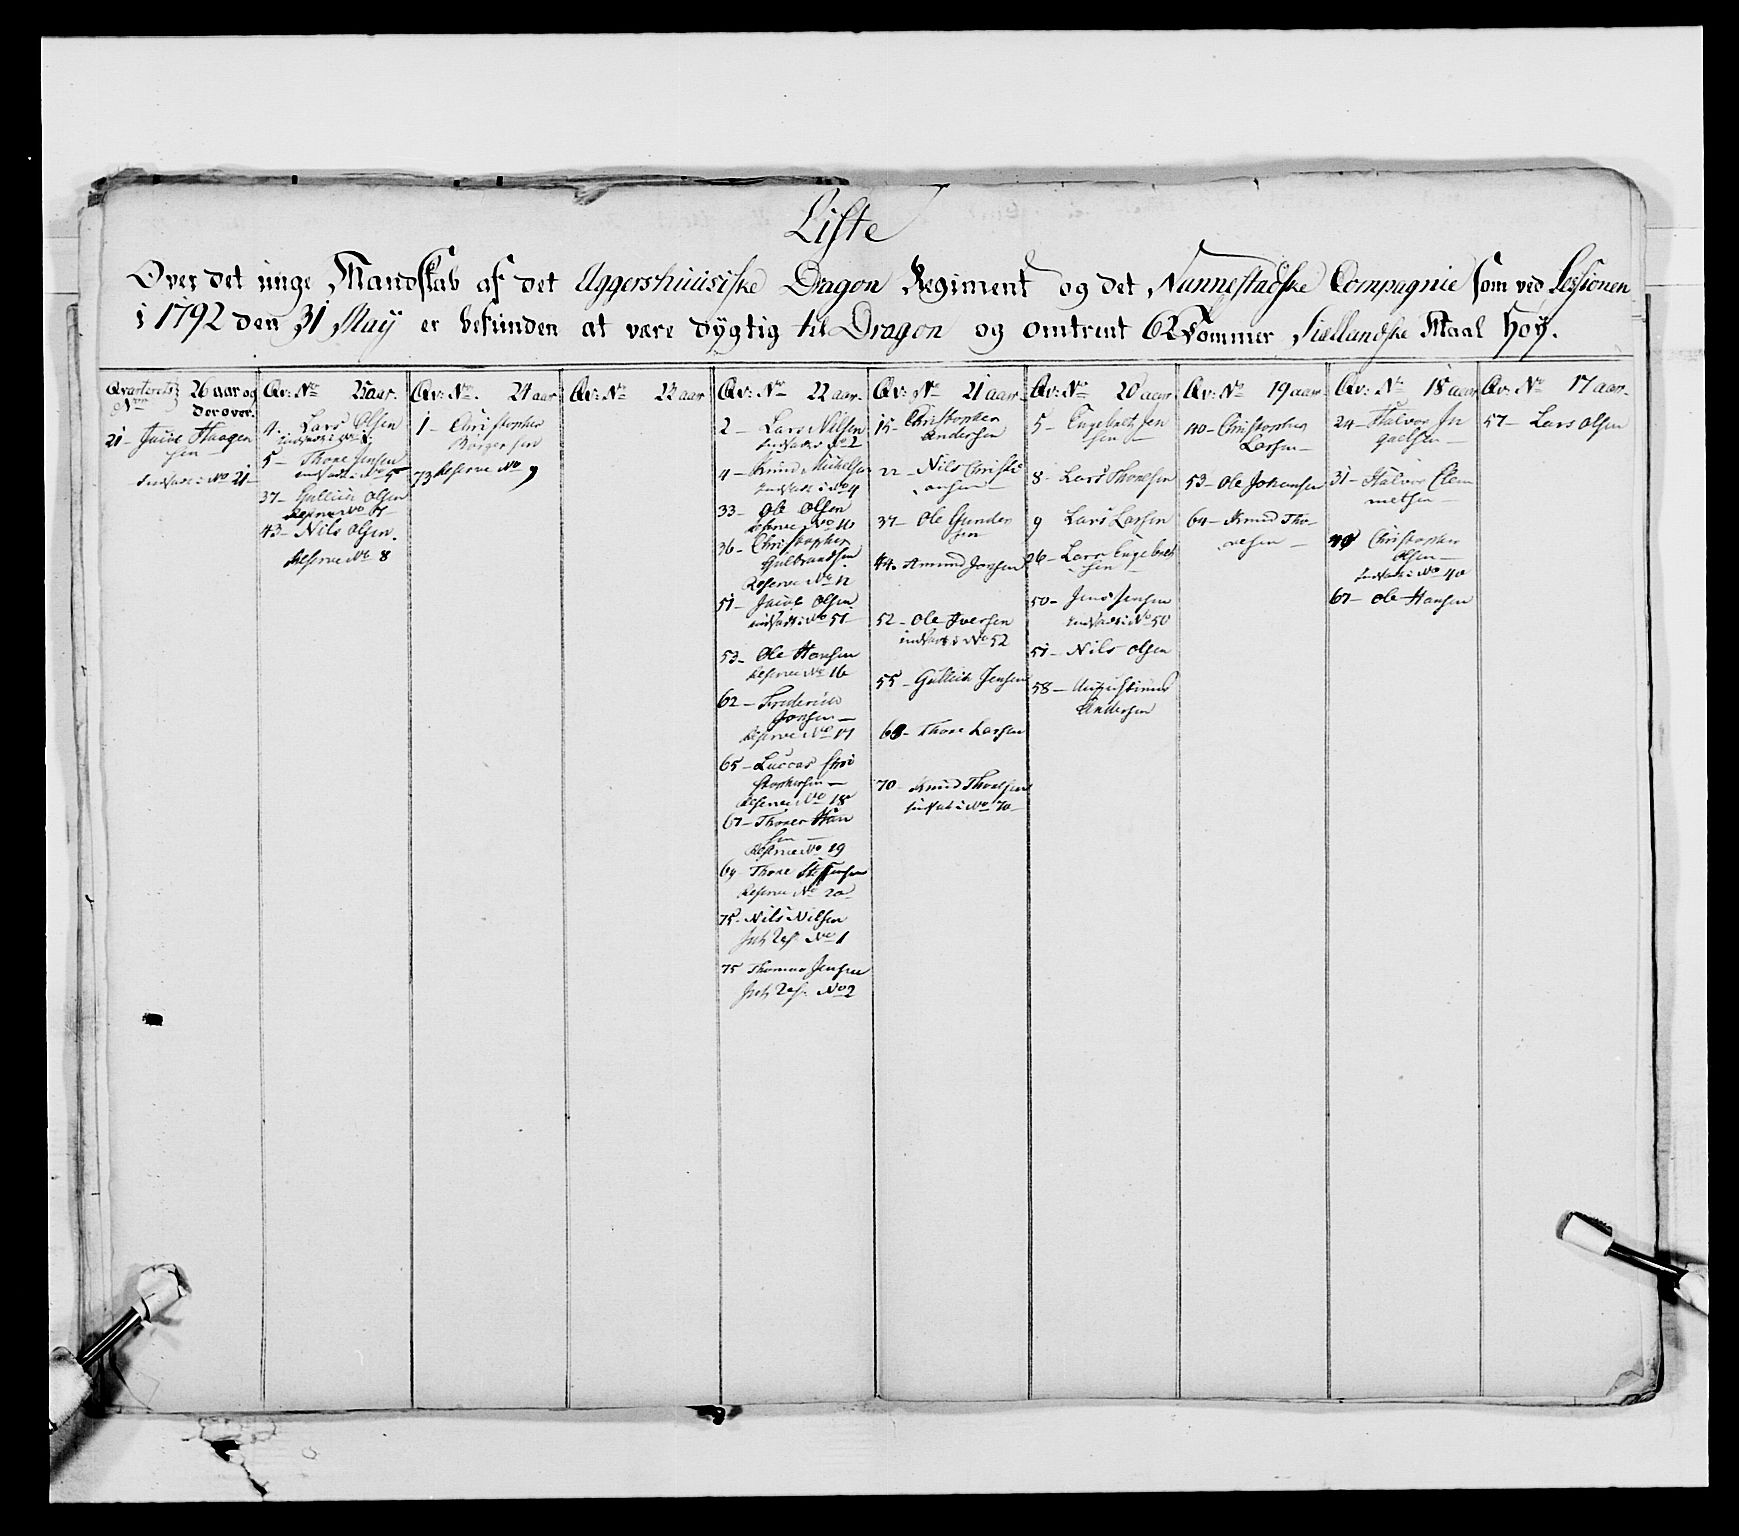 Liste
Over det unge Mandskab af det Aggershuusiske Dragon Regiment og det Nannestadske Compagnie som ved Sessionen
i 1792 den 31 May er befunden at være dygtig til Dragon og omtrent 62 Tommer Siællandske Maal høy.
Qvarterets No 26 aar og
derover.
21 - Jacob Haagen
sen
indsadt i No 21
Qv: No 25 aar.
4. Lars Olsen
indsadt i No
5 - Thore Jensen
indsadt i No 5
37 - Gullich Olsen
Reserve No
43 - Nils Olsen.
Reserve No 8
Qv: No. 24 aar
1 - Christopher
Börgersen
73 Reserve No 9
Qv: No 23 aar
Qv: No 22 aar.
2 - Lars Nilsen
indsadt i No 2
4 - Amund Michelsen
indsadt i No 4
33 - Ole Olsen
Reserve No 10
36 - Christopher
Gulbrandsen
Reserve No 12
51 - Jacob Olsen
indsadt i No 51
53 - Ole Hansen
Reserve No 16
62 - Frederich
Jonsen
Reserve No 17
65 - Luccas Chri
stophersen
Reserve No 18
67 - Thorer Han
sen
Reserve No 19
69 - Thore Steffensen
Reserve No 20
75 - Nils Nilsen
Res: No 1
75 Thomas Jensen
Res: No 2
Qv: No 21 aar
15 - Christopher
Andersen
22 - Nils Christi
ansen
37 - Ole Gunder
sen
44. Amund Jonsen
52 - Ole Iversen
indsadt i No 52
55 - Gullich Jensen
68 - Thore Larsen
70 - Amund Thoresen
indsadt i No 70
Qv: No 20 aar
5 - Engebret Jen
sen
8 - Lars Thoresen
9 Lars Larsen
26 - Lars Engebret
sen
50 - Jens Jensen
indsadt i No 50
51 - Nils Olsen
58 - Augustinus
Andersen
Qv: No 19 aar
40 - Christopher
Larsen
53 - Ole Johansen
64 - Amund Tho-
resen
Qv: No 18 aar
24 - Halvor In
galtsen
31 - Halvor Clem
metsen
40 Christopher
Olsen
indsadt i No 40
67 - Ole Hansen
Qv: No 17 aar.
57 - Lars Olsen